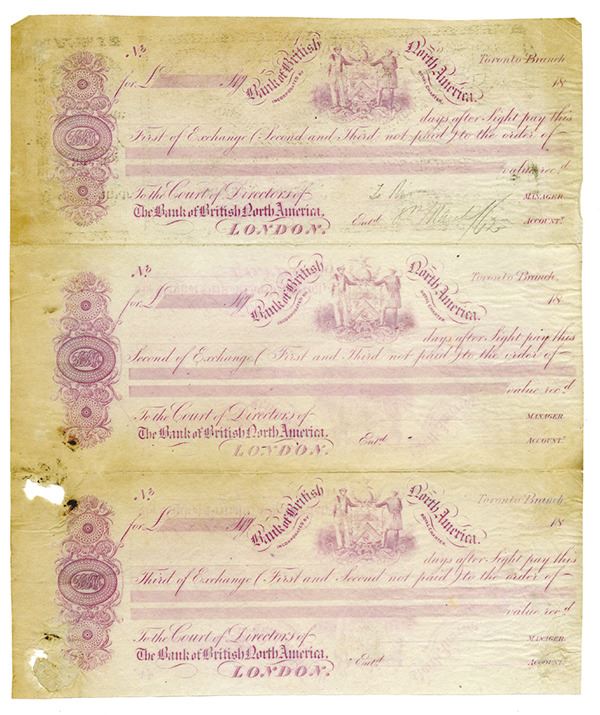 No
Bank of British North America.
INCORPORATED BY ROYAL CHARTER.
Toronto Branch
for £ Stg 18
days after Sight pay this
First of Exchange (Second and Third not paid) to the order of
value rec.d
To the Court of Directors of MANAGER
The Bank of British North America, Ent.d ACCOUNT.T
LONDON.
No
Bank of British North America.
INCORPORATED BY ROYAL CHARTER.
Toronto Branch.
for £ Stg 18
days after Sight pay this
Second of Exchange (First and Third not paid) to the order of
value rec.d
To the Court of Directors of MANAGER
The Bank of British North America, Ent.d ACCOUNT.T
LONDON.
No
Bank of British North America.
INCORPORATED BY ROYAL CHARTER.
Toronto Branch.
for £ Stg 18
days after Sight pay this
Third of Exchange (First and Second not paid) to the order of
value rec.d
To the Court of Directors of MANAGER
The Bank of British North America, Ent.d ACCOUNT.T
LONDON.